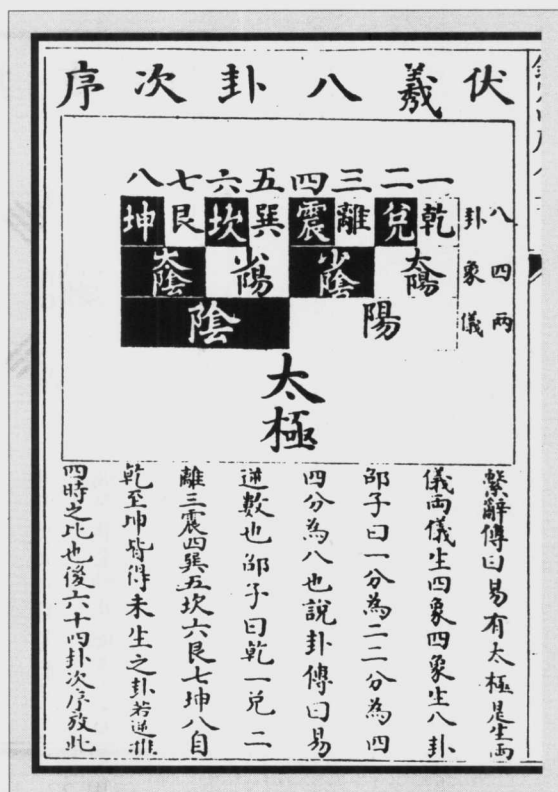 伏羲八卦次序
一二三四五六七八
八卦
乾兌離震巽坎艮坤
四象
太陽少陰少陽太陰
兩儀
陽陰
太極
繫辭傳曰易有太極是生兩
儀兩儀生四象四象生八卦
邵子曰一分為二二分為四
四分為八也說卦傳曰易
逆數也邵子曰乾一兌二
離三震四巽五坎六艮七坤八自
乾至坤皆得未生之卦若逆推
四時之比也後六十四卦次序放此